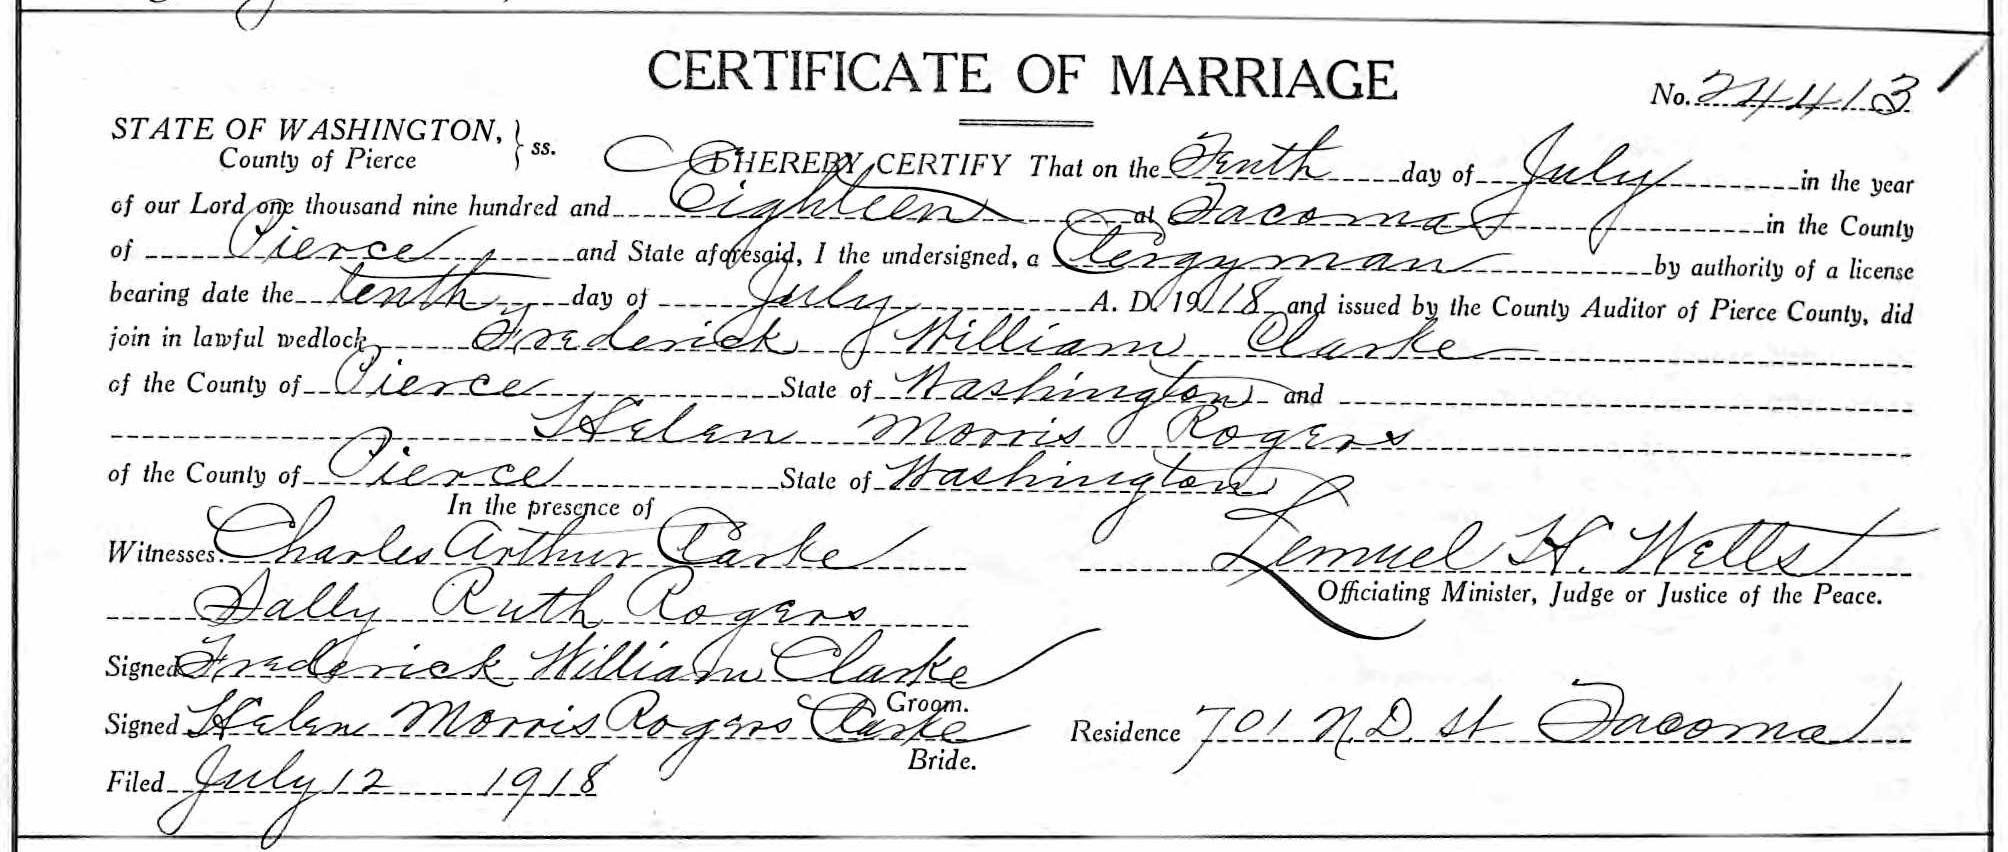 CERTIFICATE OF MARRIAGE
No. 24413
STATE OF WASHINGTON, } ss.
County of Pierce
I HEREBY CERTIFY That on the Tenth day of July in the year
of our Lord one thousand nine hundred and Eighteen at Tacoma in the County
of Pierce and State aforesaid, I the undersigned, a Clergyman by authority of a license
bearing date the tenth day of July A. D. 1918 and issued by the County Auditor of Pierce County, did
join in lawful wedlock Frederick William Clarke
of the County of Pierce State of Washington and
Helen Morris Rogers
of the County of Pierce State of Washington
In the presence of
Witnesses. Charles Arthur Clarke
Lemuel H. Wells
Officiating Minister, Judge or Justice of the Peace.
Sally Ruth Rogers
Signed Frederick William Clarke
Groom.
Signed Helen Morris Rogers Clarke
Bride.
Residence 701 N. D. St Tacoma
Filed July 12 1918